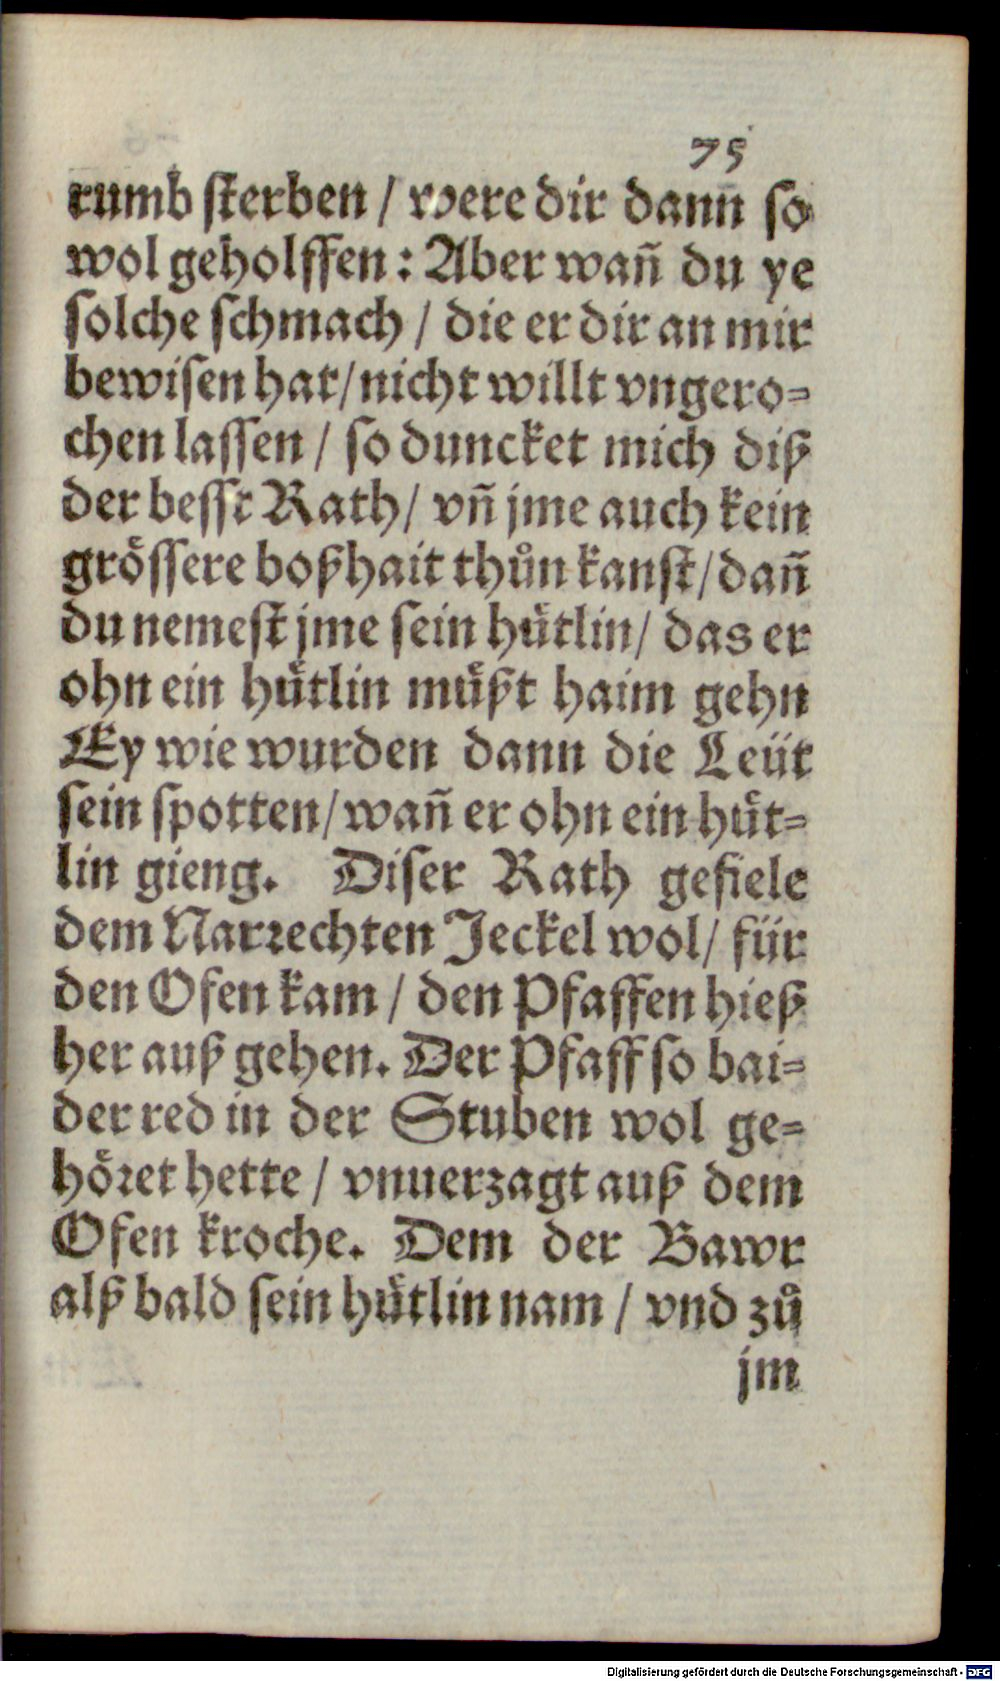 75
rumb sterben / were dir dann so
wol geholffen : Aber wañ du ye
solche schmach / die er dir an mir
bewisen hat / nicht willt vngero-
chen lassen / so duncket mich diß
der besst Rath / vñ jme auch kein
grössere boßhait thůn kanst / dañ
du nemest jme sein hütlin / das er
ohn ein hütlin müßt haim gehn
Ey wie wurden dann die Leüt
sein spotten / wañ er ohn ein hüt-
lin gieng. Diser Rath gefiele
dem Narrechten Jeckel wol / für
den Ofen kam / den Pfaffen hieß
her auß gehen. Der Pfaff so bai-
der red in der Stuben wol ge-
höret hette / vnuerzagt auß dem
Ofen kroche. Dem der Bawr
alß bald sein hütlin nam / vnd zů
jm
Digitalisierung gefördert durch die Deutsche Forschungsgemeinschaft - DFG